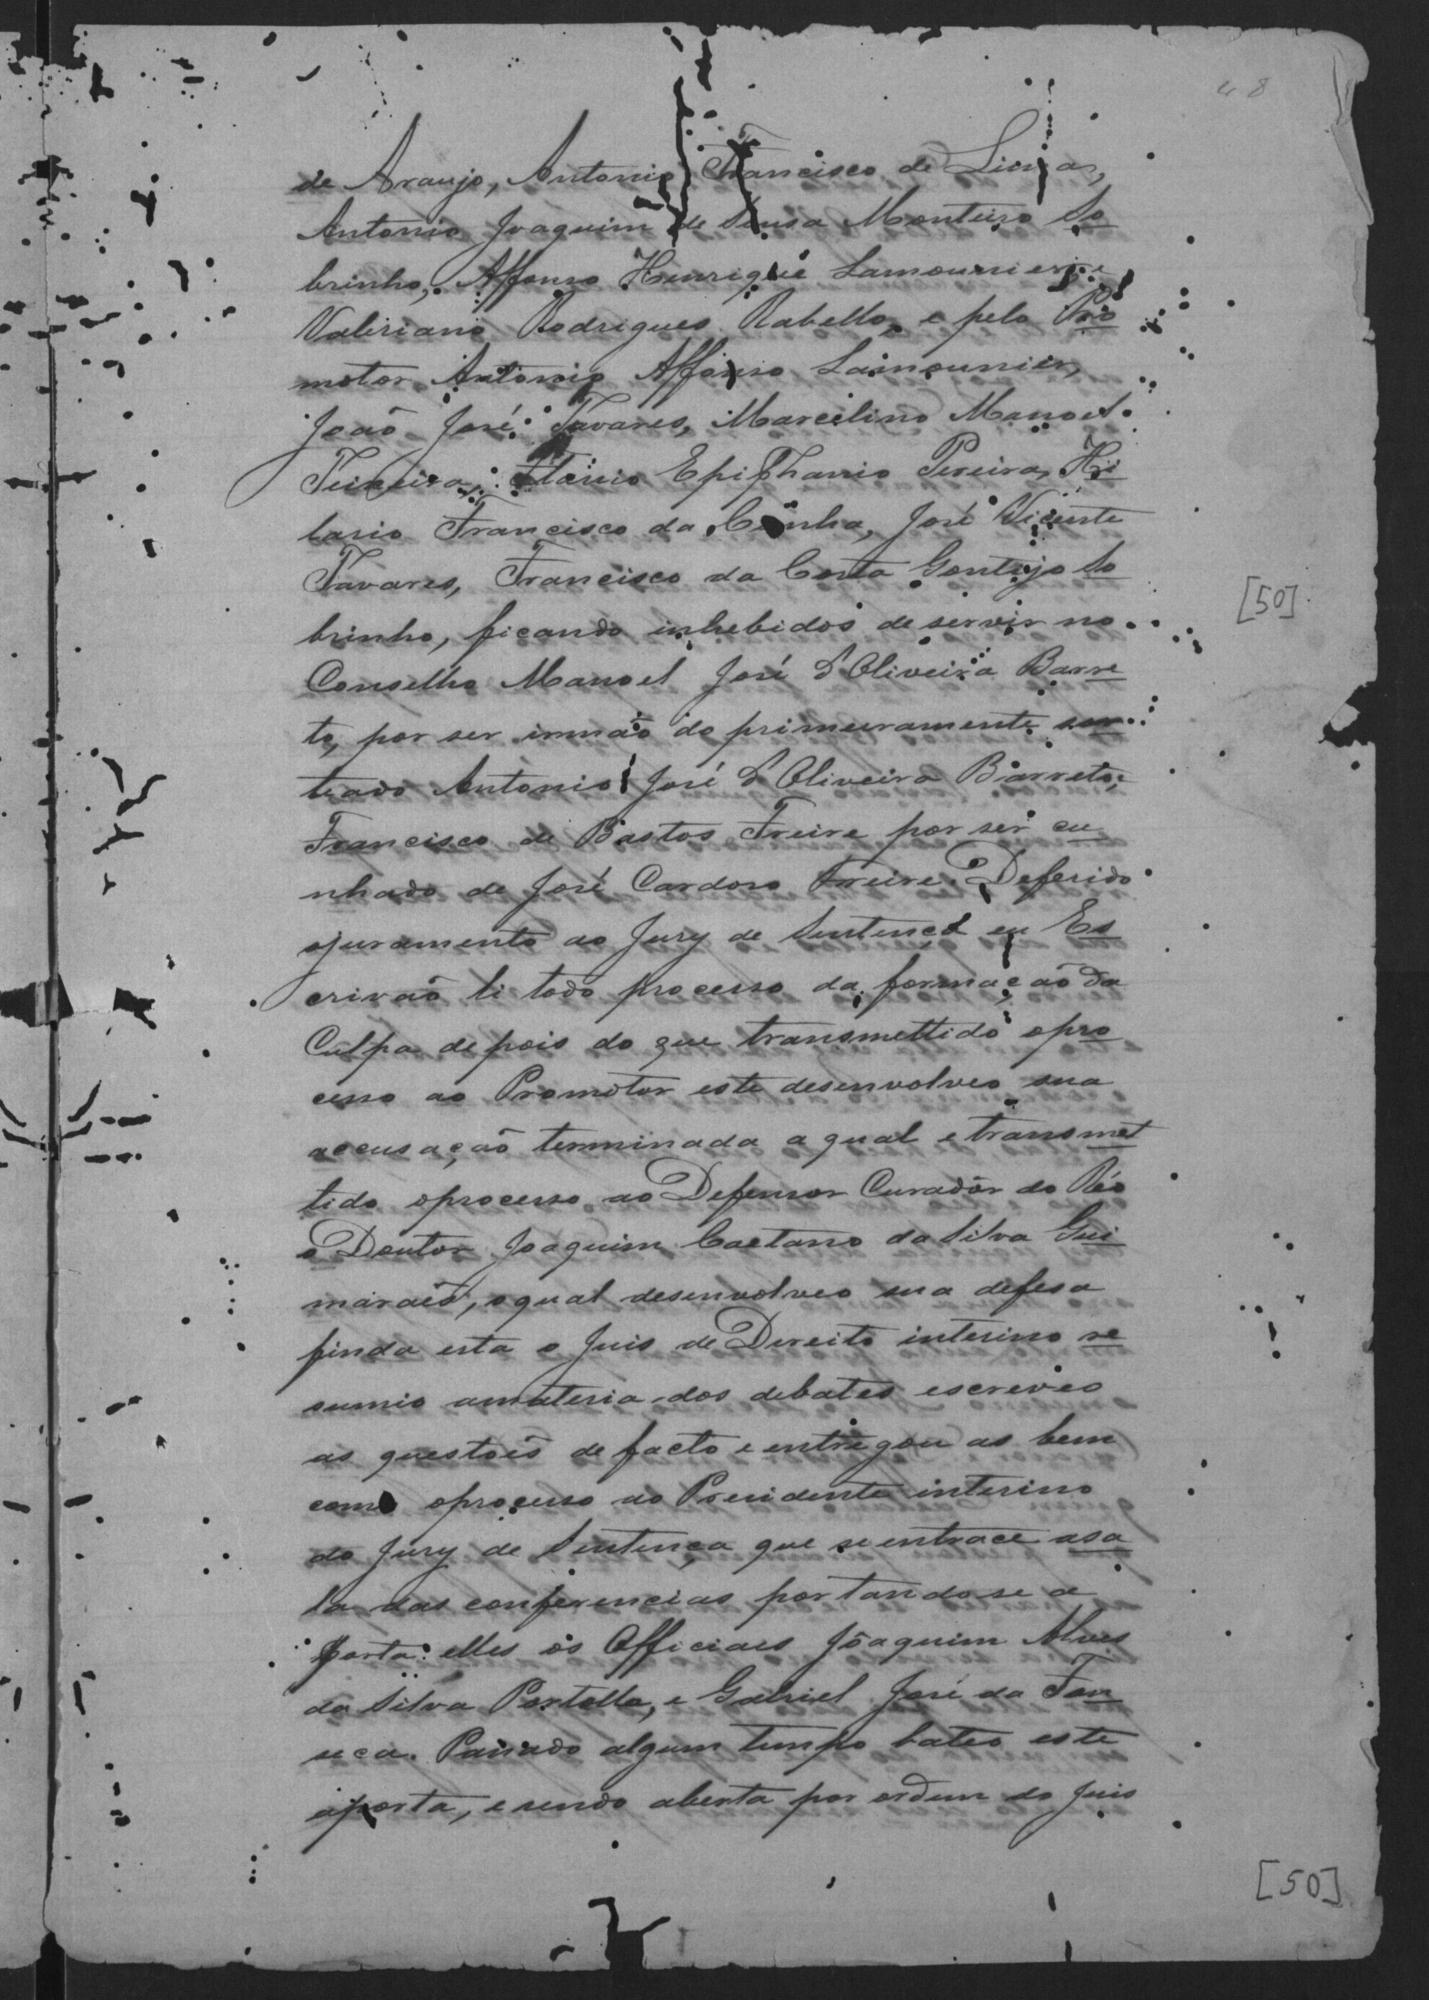 48
de Araujo, Antonio Francisco de Lima,
Antonio Joaquim de Sousa Monteiro So
brinho, Affonso Henrique Lamounier e
Valeriano Rodrigues Rabello, e pelo Pro
motor Antonio Affonso Lamounier,
João José Tavares, Marcelino Manoel
Teixeira, Flavio Epifhanio Pereira, Hi
lario Francisco da Cunha, José Vicente
Tavares, Francisco da Costa Gontijo So
brinho, ficando inhebidos de servir no
[50]
Conselho Manoel José d'Oliveira Barre
to, por ser irmão do primeiramente sor
teado Antonio José d'Oliveira Barreto,
Francisco de Bastos Freire por ser cu
nhado de José Cardoso Freire. Deferido
ojuramento ao Jury de Sentença eu Es
crivão li todo processo da formação da
Culpa depois do que transmettido opro
cesso ao Promotor este desenvolveo sua
accusação terminada a qual e transmet
tido oprocesso ao Defensor Curador do Réo
o Doutor Joaquim Caetano da Silva Gui
maraẽs, oqual desenvolveo sua defesa
finda esta o Juis de Direito interino re
sumio amateria dos debates escreveo
as questoẽs de facto e entregou as bem
como oprocesso ao Presidente interino
do Jury de Sentença que se entrace asa
la das conferencias portandose a
porta elles os Officiaes Joaquim Alves
da Silva Portella, e Gabriel José da Fon
seca. Passado algum tempo bateo este
aporta, e sendo aberta por ordem do Juis
[50]